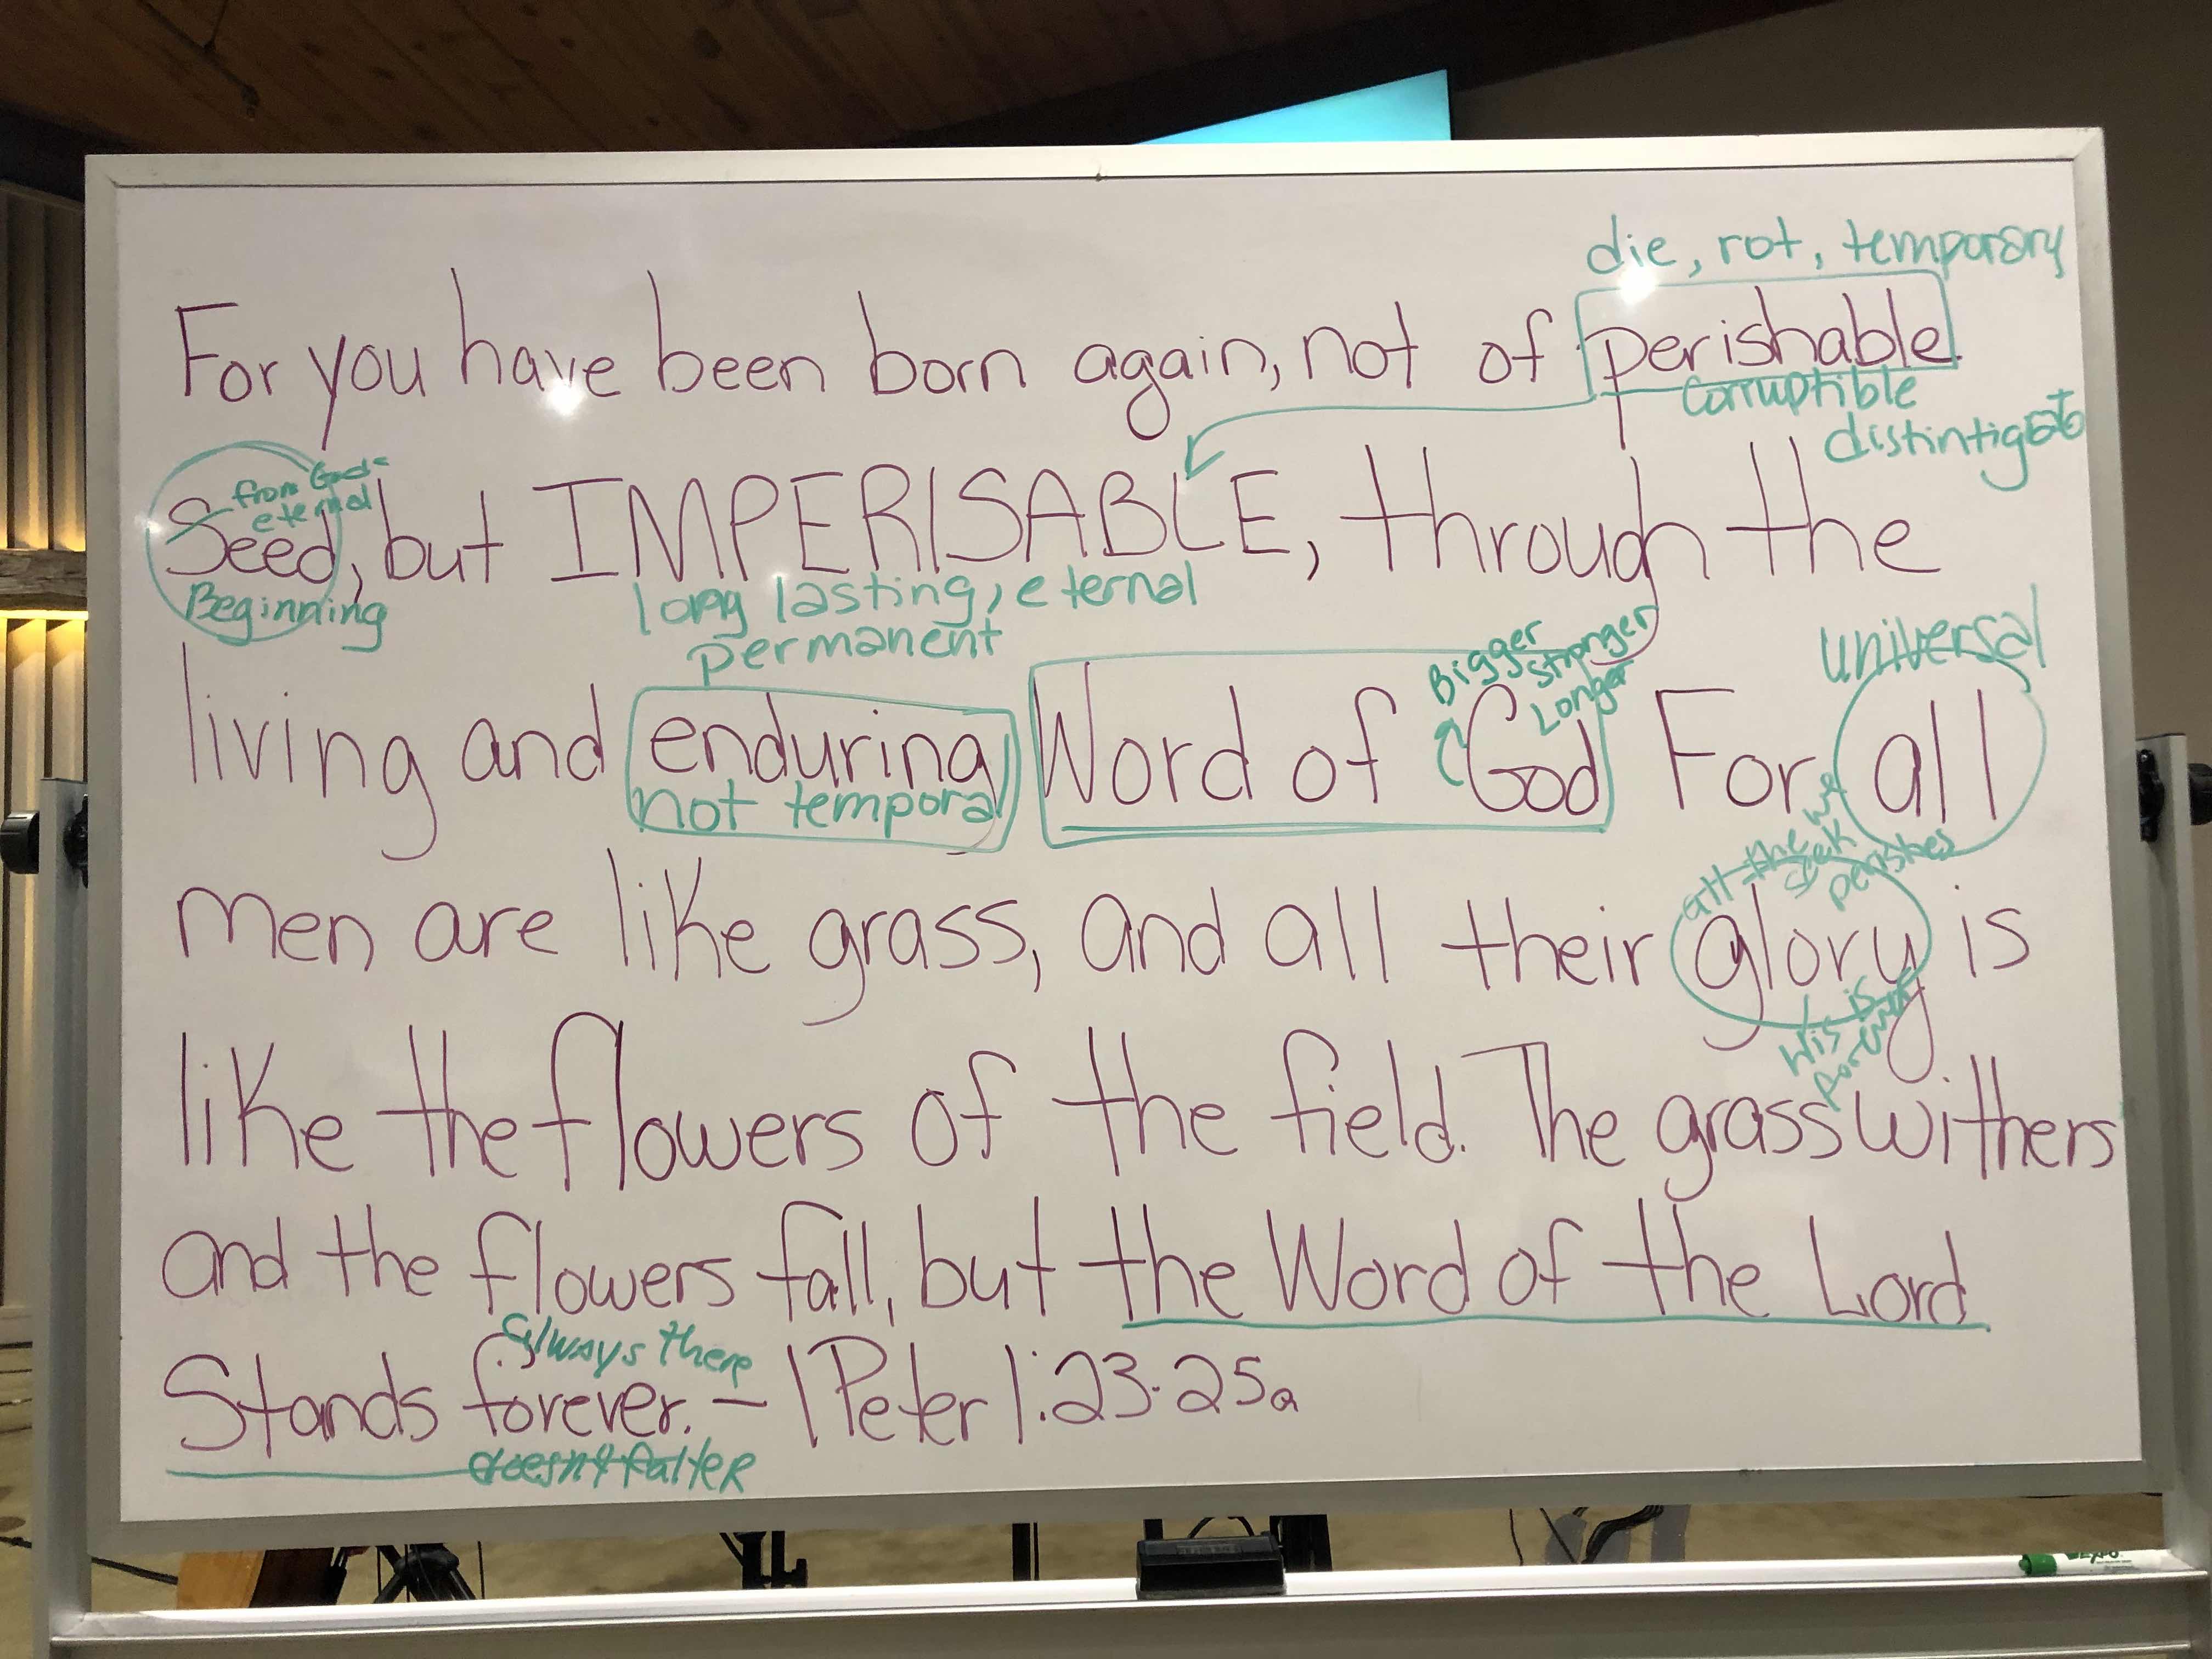 die, rot, temporary
For you have been born again, not of perishable
corruptible
distintigrate
from God-
eternal
Seed, but IMPERISABLE, through the
Beginning
long lasting, eternal
permanent
Bigger
stronger
Longer
universal
living and enduring Word of God For all
not temporal
all the we
seek
perishes
men are like grass, and all their glory is
His is
like the flowers of the field. The grass withers
and the flowers fall, but the Word of the Lord
always there
Stands forever. - 1 Peter 1:23-25a
doesn't falter
EXPO